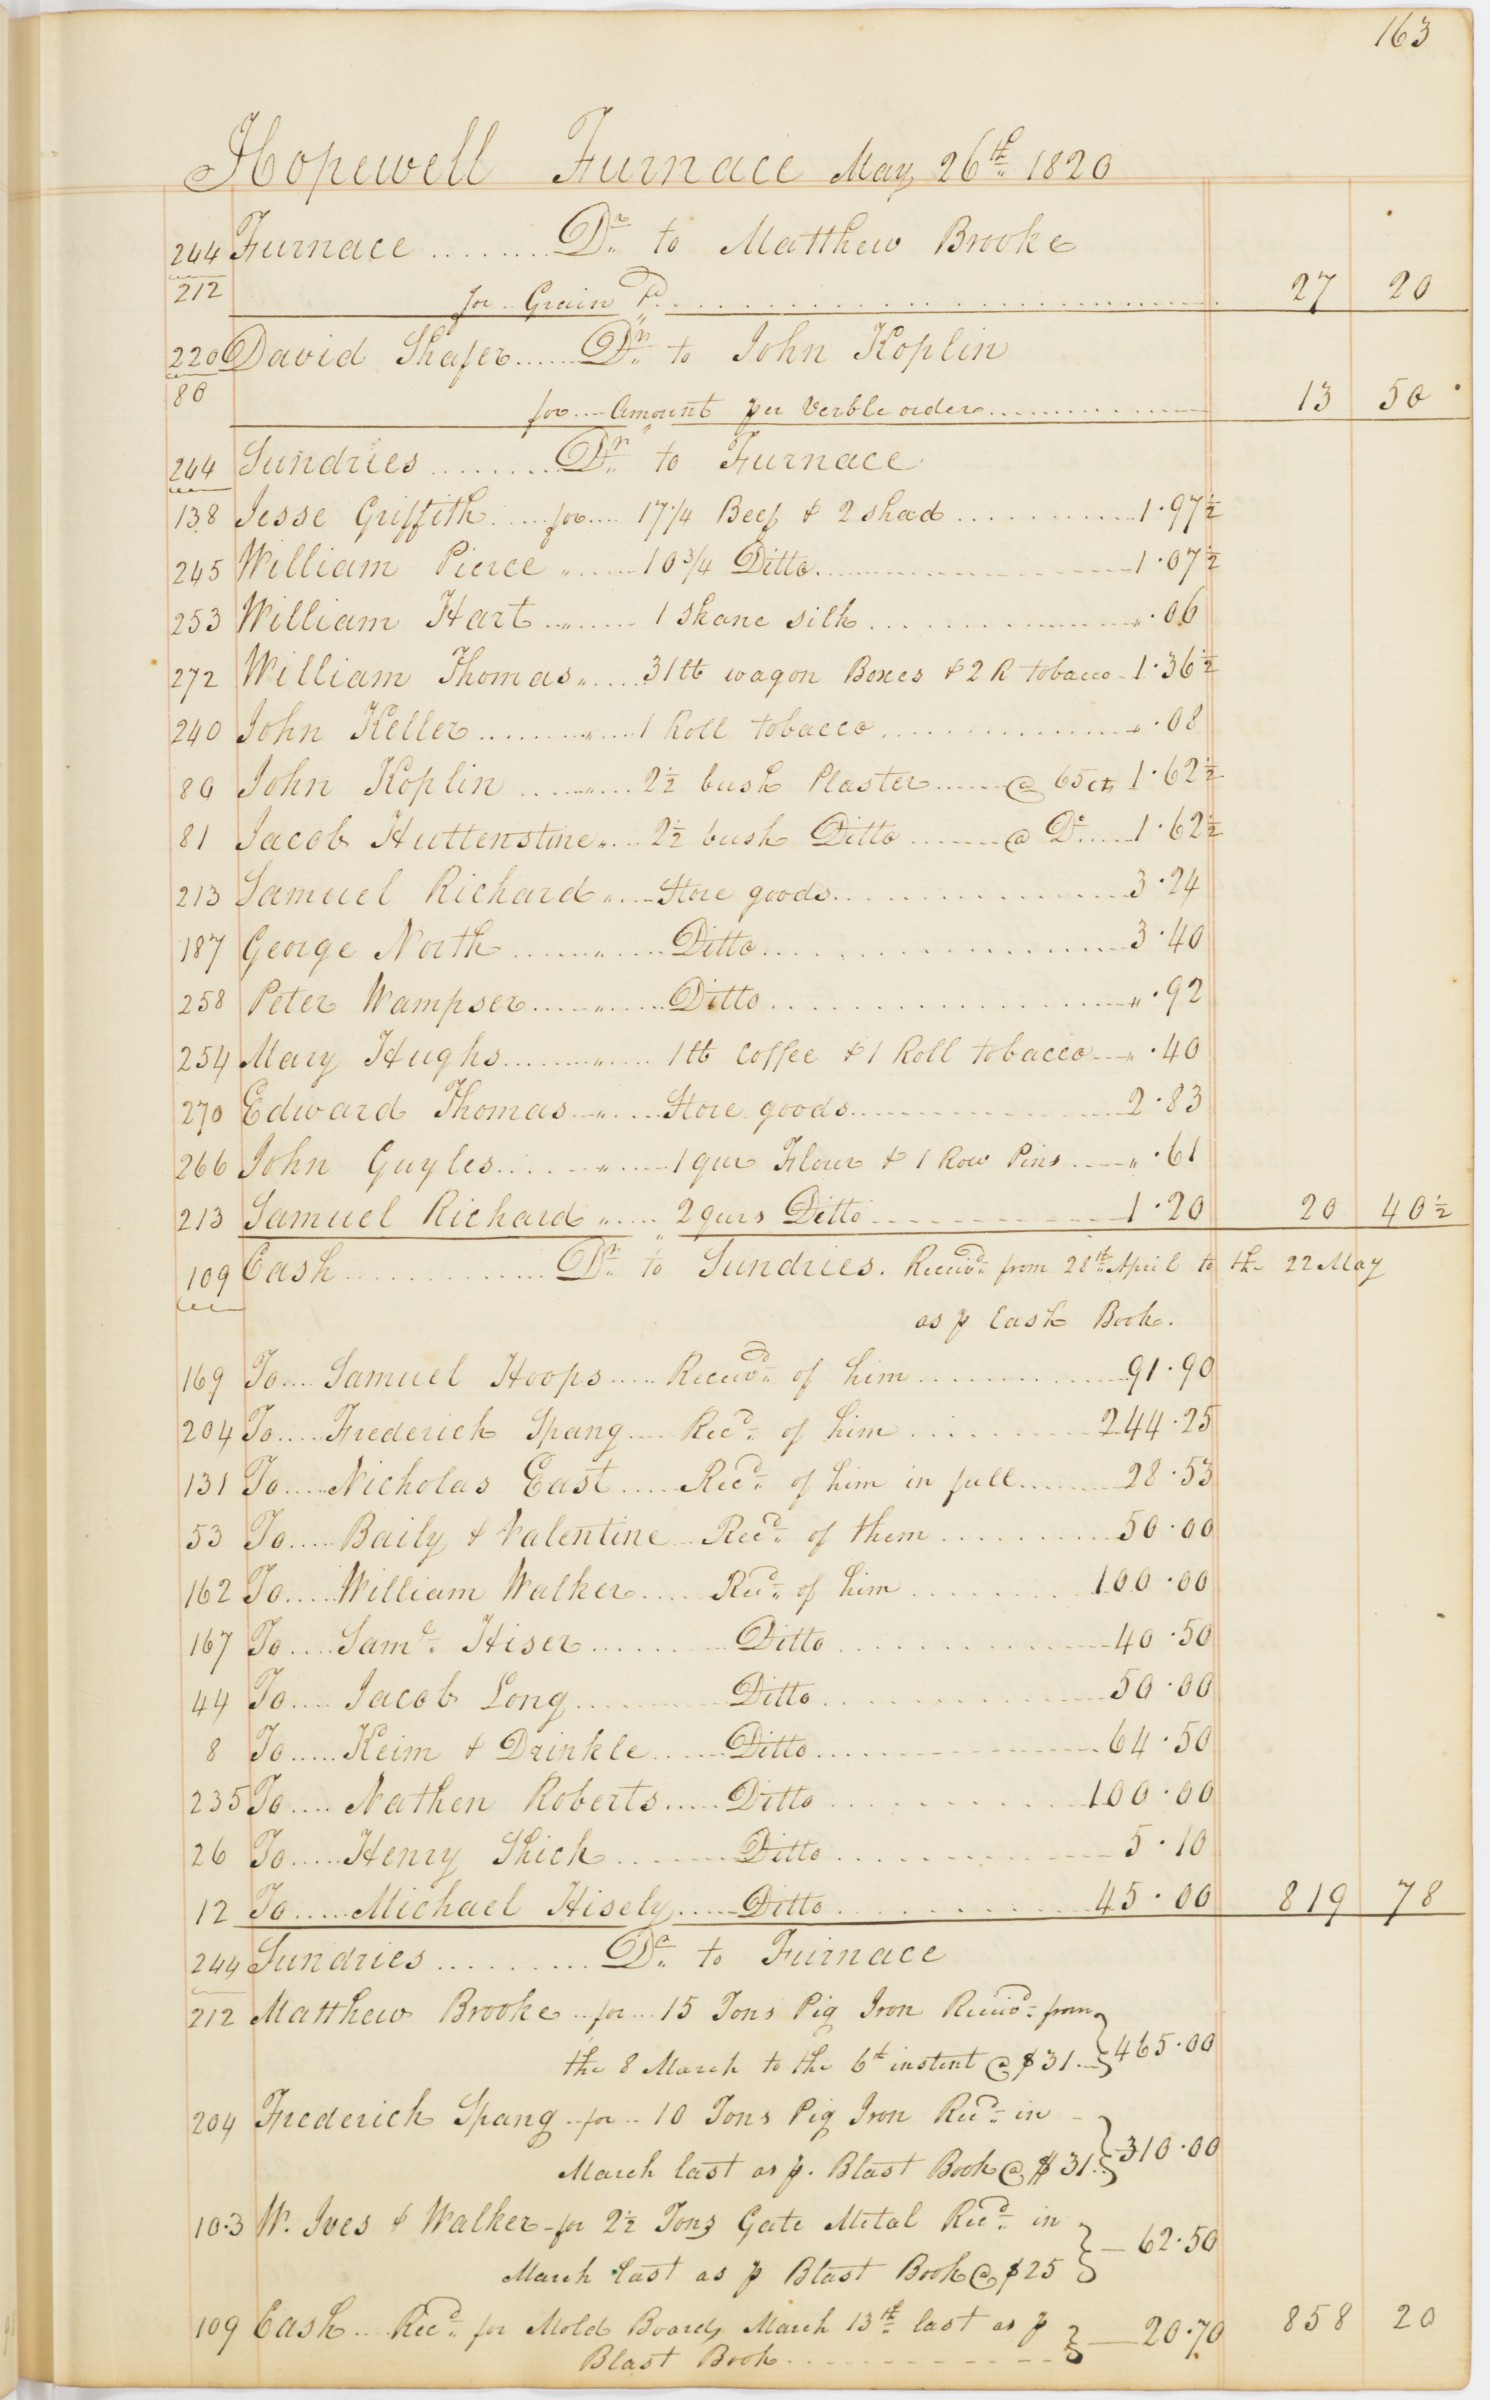 163
Hopewell Furnace May 26th 1820
244 Furnace ........ Dr to Matthew Brooke
212 for Grain Pd ........ 27 20
220 David Shafer ...... Dr to John Koplin
80 for .... Amount per Verble order ........ 13 50
244 Sundries ........ Dr to Furnace
138 Jesse Griffith ..... for .... 17 1/4 Beef & 2 shad ........ 1.97 1/2
245 William Pierce " ..... 10 3/4 Ditto ........ 1.07 1/2
253 William Hart " ..... 1 Skane silk ........ " .06
272 William Thomas " .... 31 lb wagon Boxes & 2 R tobacco - 1.36 1/2
240 John Keller ........ " .... 1 Roll tobacco ........ " .08
80 John Koplin ...... " .... 2 1/2 bush Plaster ...... @ 65 cts 1.62 1/2
81 Jacob Huttenstine " .... 2 1/2 bush Ditto ........ @ Do .... 1.62 1/2
213 Samuel Richard " .... Store goods ........ 3.24
187 George North ........ " .... Ditto ........ 3.40
258 Peter Wampser ...... " .... Ditto ........ " .92
254 Mary Hughs ........ " .... 1 lb Coffee & 1 Roll tobacco .... " .40
270 Edward Thomas .. " .... Store goods ........ 2.83
266 John Guyles ...... " .... 1 qur Flour & 1 Row Pins .... " .61
213 Samuel Richard " .... 2 qurs Ditto ........ 1.20 20 40 1/2
109 Cash ........ Dr to Sundries. Receivd from 28th April to the 22 May
as p Cash Book.
169 To .... Samuel Hoops ..... Receivd of him ........ 91.90
204 To .... Frederick Spang .... Recd of him ........ 244.25
131 To .... Nicholas East ..... Recd of him in full ........ 28.53
53 To .... Baily & Valentine Recd of them ........ 50.00
162 To .... William Walker ..... Recd of him ........ 100.00
167 To .... Saml Hiser ........ Ditto ........ 40.50
44 To .... Jacob Long ........ Ditto ........ 50.00
8 To .... Keim & Drinkle ...... Ditto ........ 64.50
235 To .... Nathen Roberts ..... Ditto ........ 100.00
26 To .... Henry Shick ........ Ditto ........ 5.10
12 To .... Michael Hisely ..... Ditto ........ 45.00 819 78
244 Sundries ........ Dr to Furnace
212 Matthew Brooke .. for ... 15 Tons Pig Iron Receivd from
the 8 March to the 6th instent @ $31 ... 465.00
204 Frederick Spang .. for .. 10 Tons Pig Iron Recd in
March last as p. Blast Book @ $31 .. 310.00
103 W. Ives & Walker - for 2 1/2 Tons Gate Metal Recd in
March last as p Blast Book @ $25 — 62.50
109 Cash .. Recd for Mold Boards March 13th last as p
Blast Book ........ 20.70 858 20